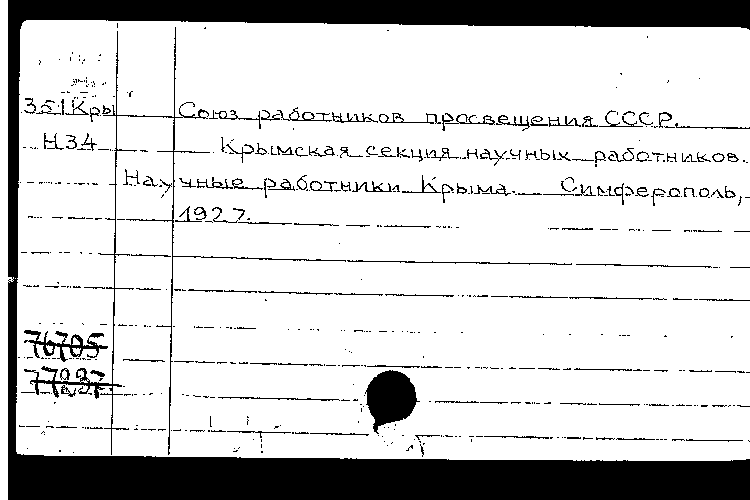 351Кры Союз работников просвещения СССР.
Н34 Крымская секция научных работников.
Научные работники Крыма. Симферополь,
1927.
76705
77237